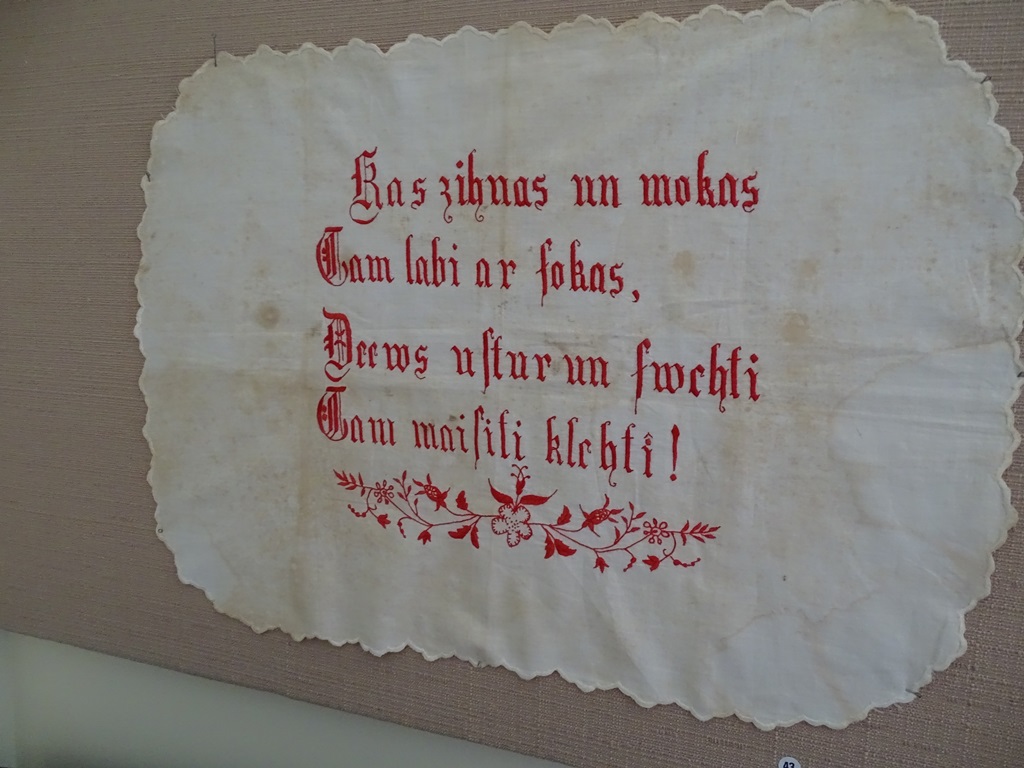 Kas zihnas un mokas
Tam labi ar ſokas,
Deews uſtur un ſwehti
Tam maiſiti klehtî!
43